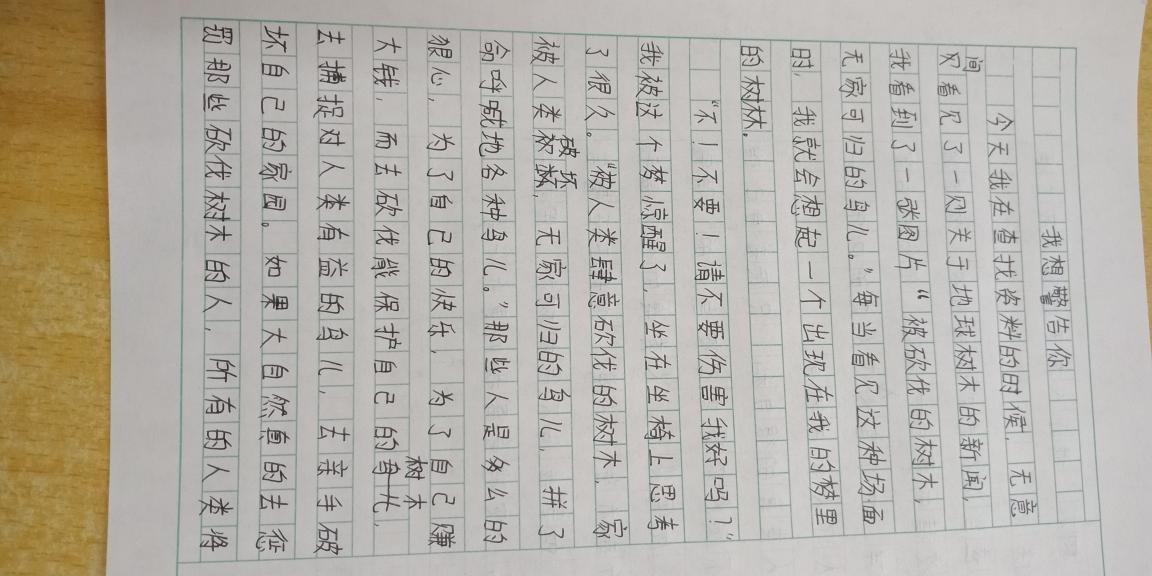 我想警告你
今天我在查找资料的时候，无意
间又看见了一见关于地球树木的新闻，
我看到了一张图片“被砍伐的树木，
无家可归的鸟儿。”每当看见这种场面
时，我就会想起一个出现在我的梦里
的树林。
“不！不要！请不要伤害我好吗？”
我被这个梦惊醒了，坐在坐椅上思考
了很久。“被人类肆意砍伐的树木，家
被人类破坏，无家可归的鸟儿，拼了
命呼喊地各种鸟儿。”那些人是多么的
狠心，为了自己的快乐，为了自己赚
大钱，而去砍伐能保护自己的树木，
去捕捉对人类有益的鸟儿，去亲手破
坏自己的家园。如果大自然真的去惩
罚那些砍伐树木的人，所有的人类将